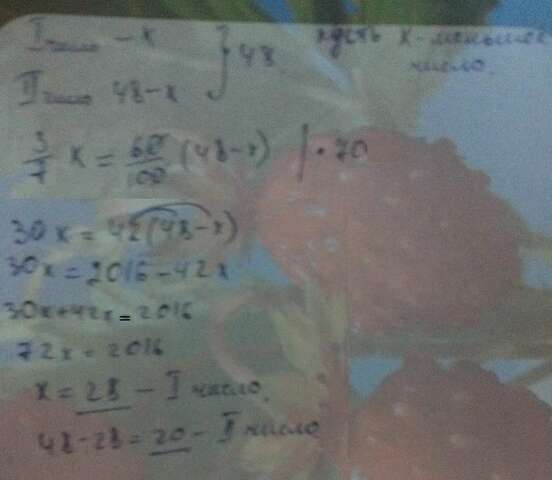 I число - x } 48. пусть x - меньшее
II число 48-x число.
3/7 x = 60/100 (48-x) | · 70
30x = 42(48-x)
30x = 2016 - 42x
30x + 42x = 2016
72x = 2016
x = 28 - I число.
48 - 28 = 20 - II число